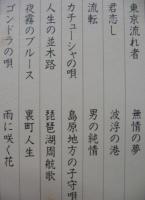 東京流れ者
君恋し
流転
カチューシャの唄
人生の並木路
夜霧のブルース
ゴンドラの唄
無情の夢
波浮の港
男の純情
島原地方の子守唄
琵琶湖周航歌
裏町人生
雨に咲く花